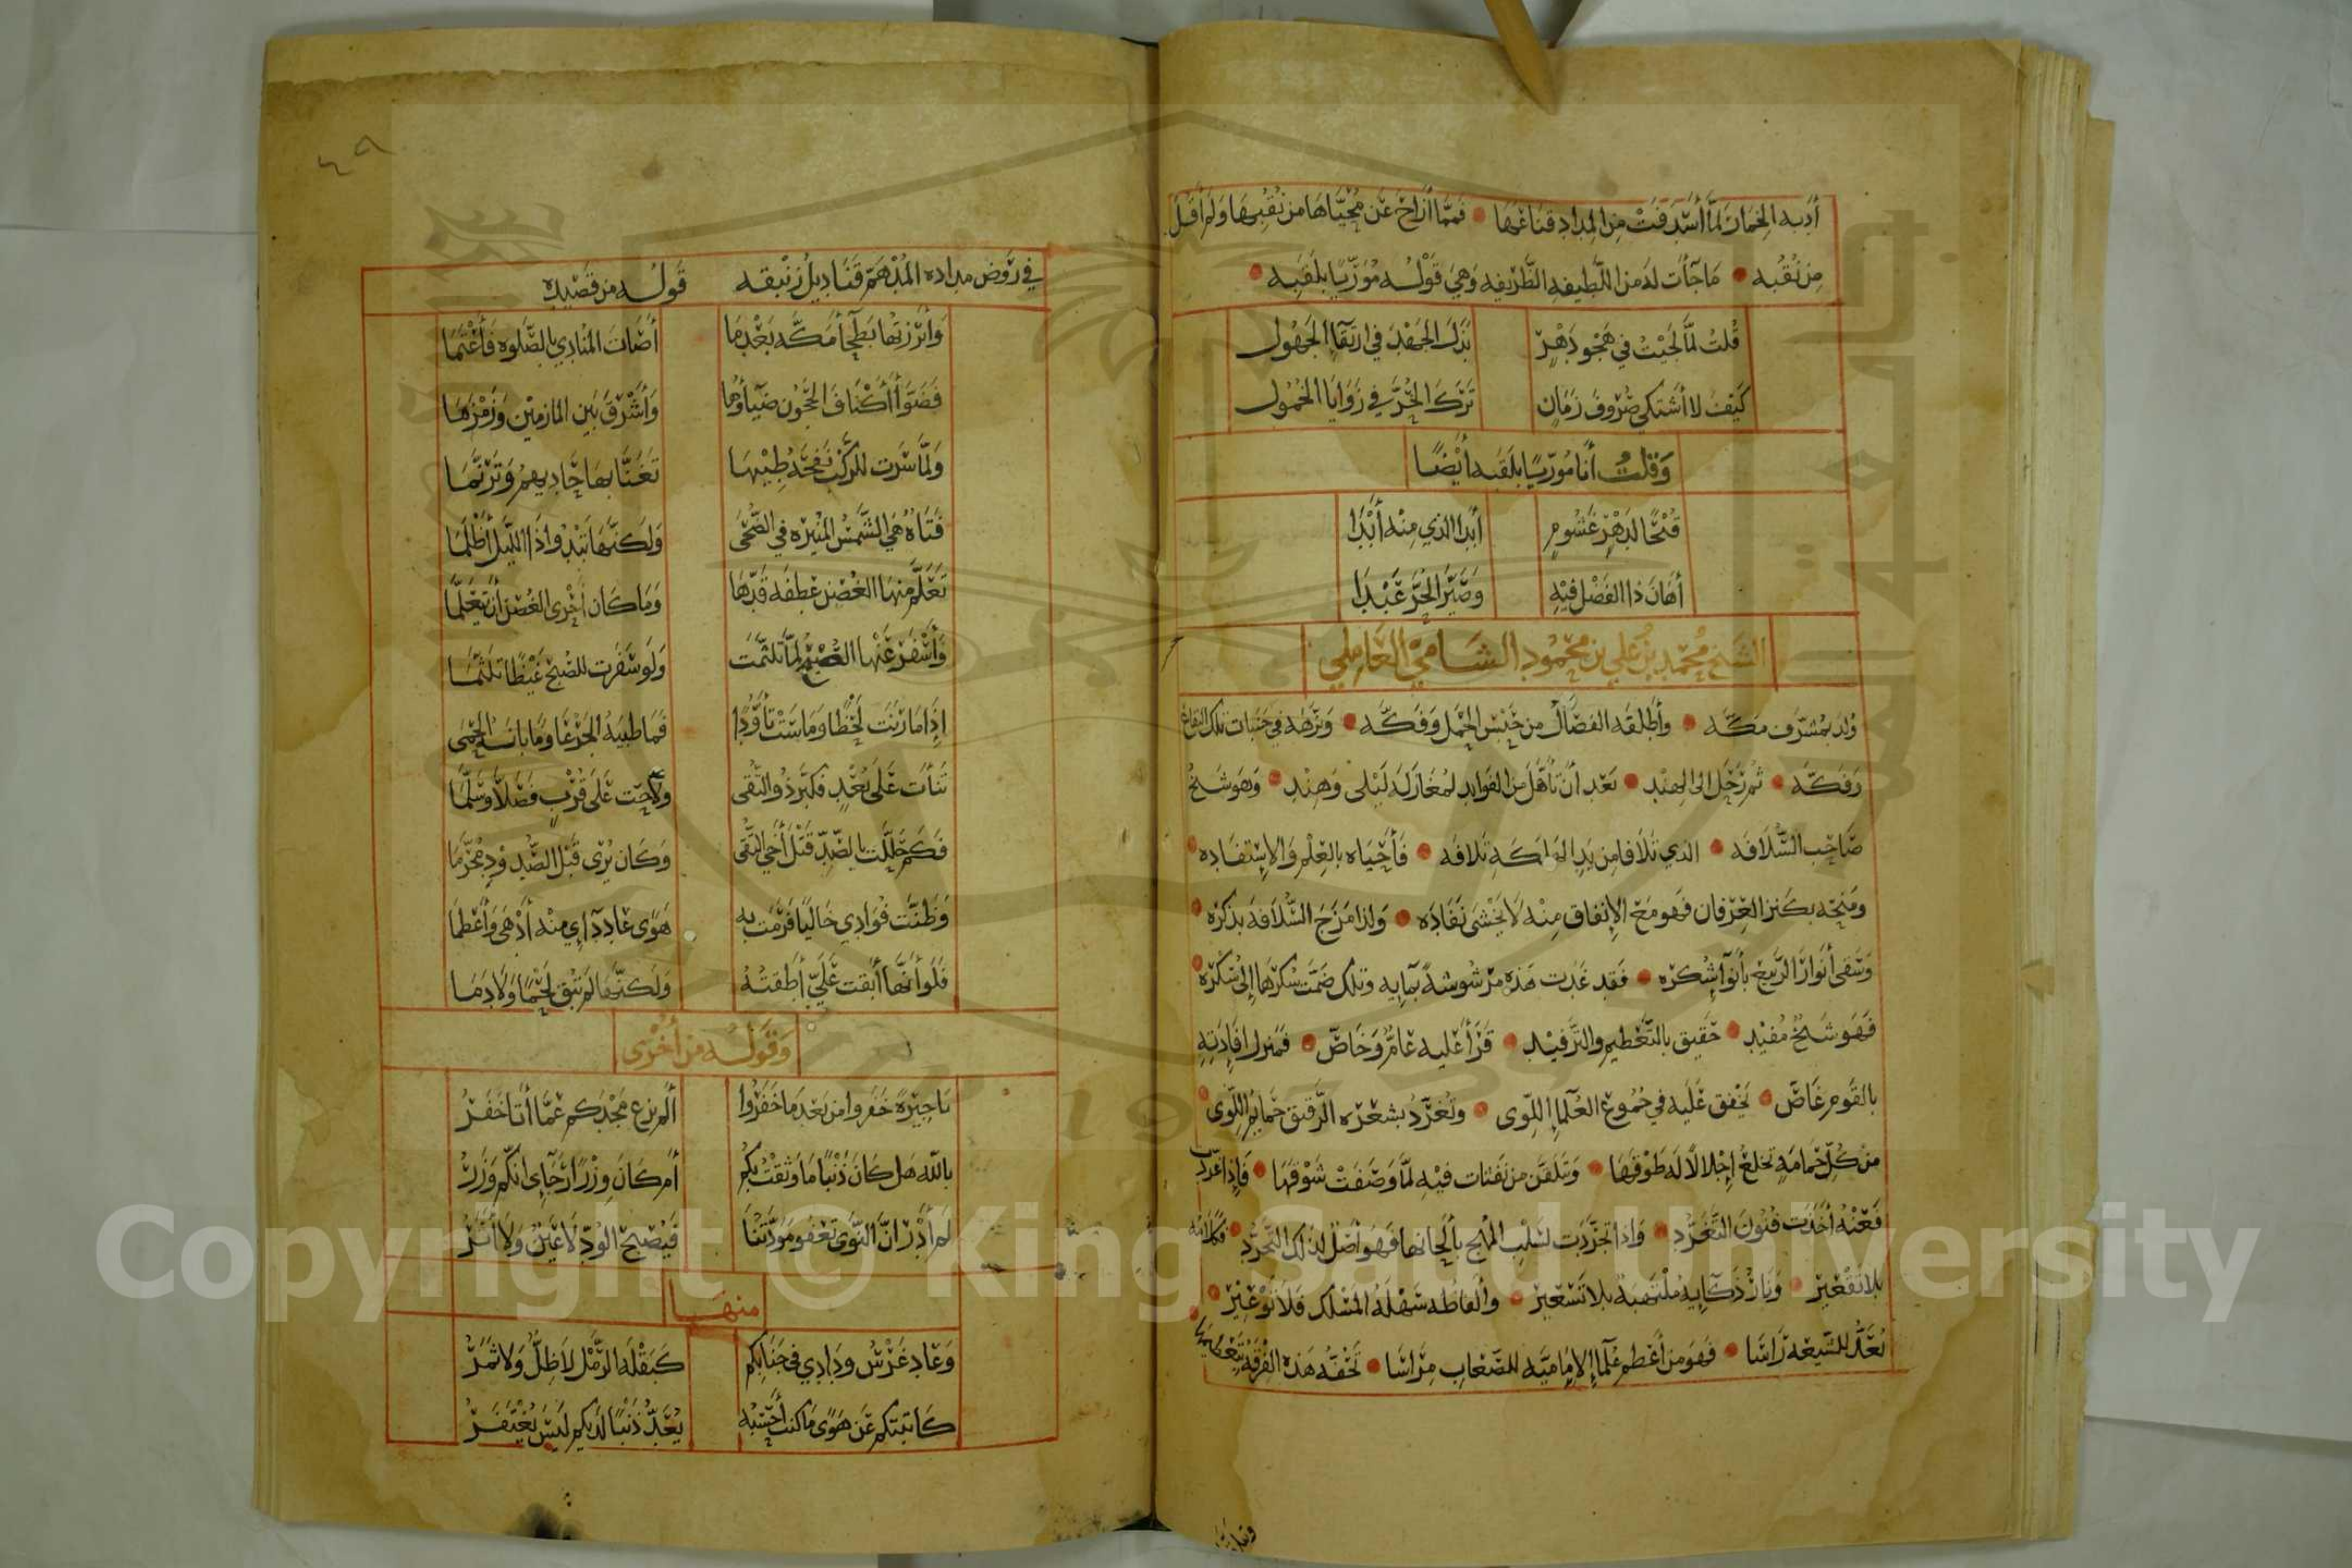 أدبه الخمار لما أسدفت من المداد قناعها • فمما أزاح عن محياها من نقبها ولم أقل
من نقبه • ما جاءت لد من اللطيفه الظريفه وهي قوله موريا بلقبه •
قلت لما لجيت في هجو دهر بذل الجهد في ارتقاء الجهول
كيف لا أشتكي صروف زمان ترك الحر في زوايا الخمول
وقلت أنا موريا بلقبه أيضا
قبحا لدهر غشوم أبدا الذي منه أبدا
أهان ذا الفضل فيه وصير الحر عبدا
الشيخ محمد بن علي بن محمود الشامي العاملي
ولد بمشرف مكه • وأطلقه الفضال من حبس الجهل وفكه • ونزهه في جنبات تلك البقاع
وفكه • ثم رحل الى الهند • بعد أن تأهل من الفوايد لمغازلة ليلى وهند • وهو شيخ
صاحب السلافه • الذي تلافا من يد الهلكة تلافه • فأحياه بالعلم والإستفاده •
ومنحه بكنز العرفان فهو مع الإنفاق منه لا يخشى نفاده • ولذا مزج السلافة بذكره •
وسقى أنوار الربيع بأنواء شكره • فقد غدت هذه مرشوشة بمآيه وتلك ضمت سكرها إلى شكره •
فهو شيخ مفيد • حقيق بالتعظيم والترفيد • قرأ عليه عام وخاص • فمنزل إفادته
بالقوم غاص • تخفق عليه في جموع العلماء اللوى • وتغرد بشعره الرقيق حمايم اللوى •
من كل حمامة تخلع إجلالا له طوقها • وتلقن من نفثات فيه لما وصفت شوقها • فإذا غردت
فعنه أخذت فنون التغرد • واذا تجردت لسلب المهج بألحانها فهو أصل لذلك التجرد • فكلامه
بلا تقعير • ونار ذكآيه ملتهبة بلا تسعير • وألفاظه سهلة المسلك فلا توعير •
تعد للشيعه راسا • فهو من أعظم علماء الإماميه للصعاب مراسا • تحفه هذه الفرقة
في روض مداده المدهم قناديل زنبقه قوله من قصيده
وأبرزتها بطحآء مكه بعدما أضات المنادي بالصلوه فأعتما
فضوأ أكناف الحجون ضيآؤها وأشرق بين المازمين وزمزما
ولما سرت للركب نفحة طيبها تغنا بها حاديهم وترنما
فتاة هي الشمس المنيره في الضحى ولكنها تبدو اذا الليل أظلما
تعلم منها الغصن عطفة قدها وما كان أحرى الغصن أن يتعلما
وأسفر عنها الصبح لما تلثمت ولو سفرت للصبح غيظا تلثما
إذا ما رنت لحظا وماست تأودا فما ظبية الجزعا وما بانة الحمى
تنأت على بعد فكبر ذو التقى ولاحت على قرب فصلا وسلما
فكم حللت بالصد قتل أخي التقى وكان يرى قبل الصدود محرما
وظنت فوادي خاليا فرمت به هوى عاد دآءي منه أدهى وأعظما
فلو أنها أبقت علي أطقته ولكنها لم تبق لحما ولا دما
وقوله من أخرى
يا جيرة خفروا من بعد ما خفروا ألم يزع مجدكم عما أتا خفر
بالله هل كان ذنبا ما وثقت بكم أم كان وزرا رجآءي انكم وزر
لم أدر ان النوى تعفو مودتنا فيصبح الود لا عين ولا أثر
منها
وعاد غرس ودادي في جنابكم كبقلة الرمل لا ظل ولا ثمر
كاتبتكم عن هوى ما كنت أحسبه يعد ذنبا لديكم ليس يغتفر
Copyright © King Saud University